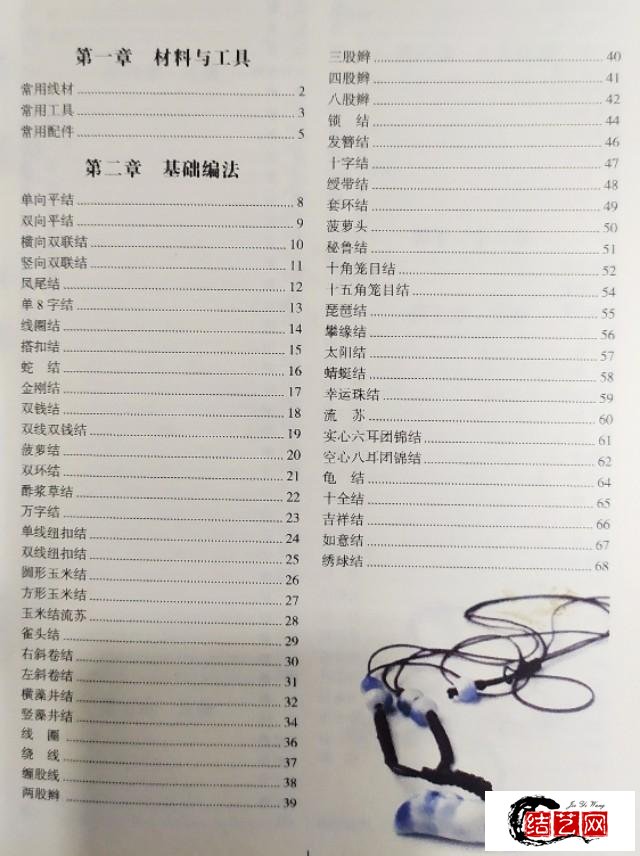 第一章 材料与工具
常用线材 2
常用工具 3
常用配件 5
第二章 基础编法
单向平结 8
双向平结 9
横向双联结 10
竖向双联结 11
凤尾结 12
单8字结 13
线圈结 14
搭扣结 15
蛇 结 16
金刚结 17
双钱结 18
双线双钱结 19
菠萝结 20
双环结 21
酢浆草结 22
万字结 23
单线纽扣结 24
双线纽扣结 25
圆形玉米结 26
方形玉米结 27
玉米结流苏 28
雀头结 29
右斜卷结 30
左斜卷结 31
横藻井结 32
竖藻井结 34
线 圈 36
绕 线 37
缠股线 38
两股辫 39
三股辫 40
四股辫 41
八股辫 42
锁 结 44
发簪结 46
十字结 47
绶带结 48
套环结 49
菠萝头 50
秘鲁结 51
十角笼目结 52
十五角笼目结 54
琵琶结 55
攀缘结 56
太阳结 57
蜻蜓结 58
幸运珠结 59
流 苏 60
实心六耳团锦结 61
空心八耳团锦结 62
龟 结 64
十全结 65
吉祥结 66
如意结 67
绣球结 68
Jie Yi Wang
结艺网